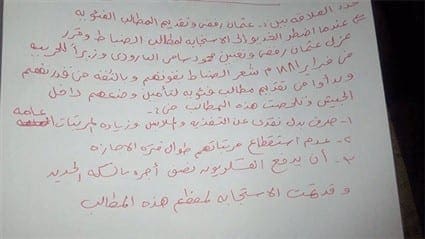 حدد العلاقة بين : عثمان رفقى وتقديم المطالب الفئوية
ج عندما اضطر الخديو الى الاستجابه لمطالب الضباط وقرر
عزل عثمان رفقى وتعيين محمود سامى البارودى وزيراً للحربيه
فى فبراير ١٨٨١ م شعر الضباط بقوتهم وبالثقه من قدرتهم
وبدأوا من تقديم مطالب فئويه لتأمين وضعهم داخل
الجيش وتلخصت هذه المطالب فى :
١- صرف بدل نقدى عن التغذيه والملابس وزياده المرتبات عامه
٢- عدم استقطاع مرتباتهم طوال فتره الاجازه
٣- أن يدفع العسكريون نصف أجره بالسكه الحديد
وقد تمت الاستجابه لمعظم هذه المطالب